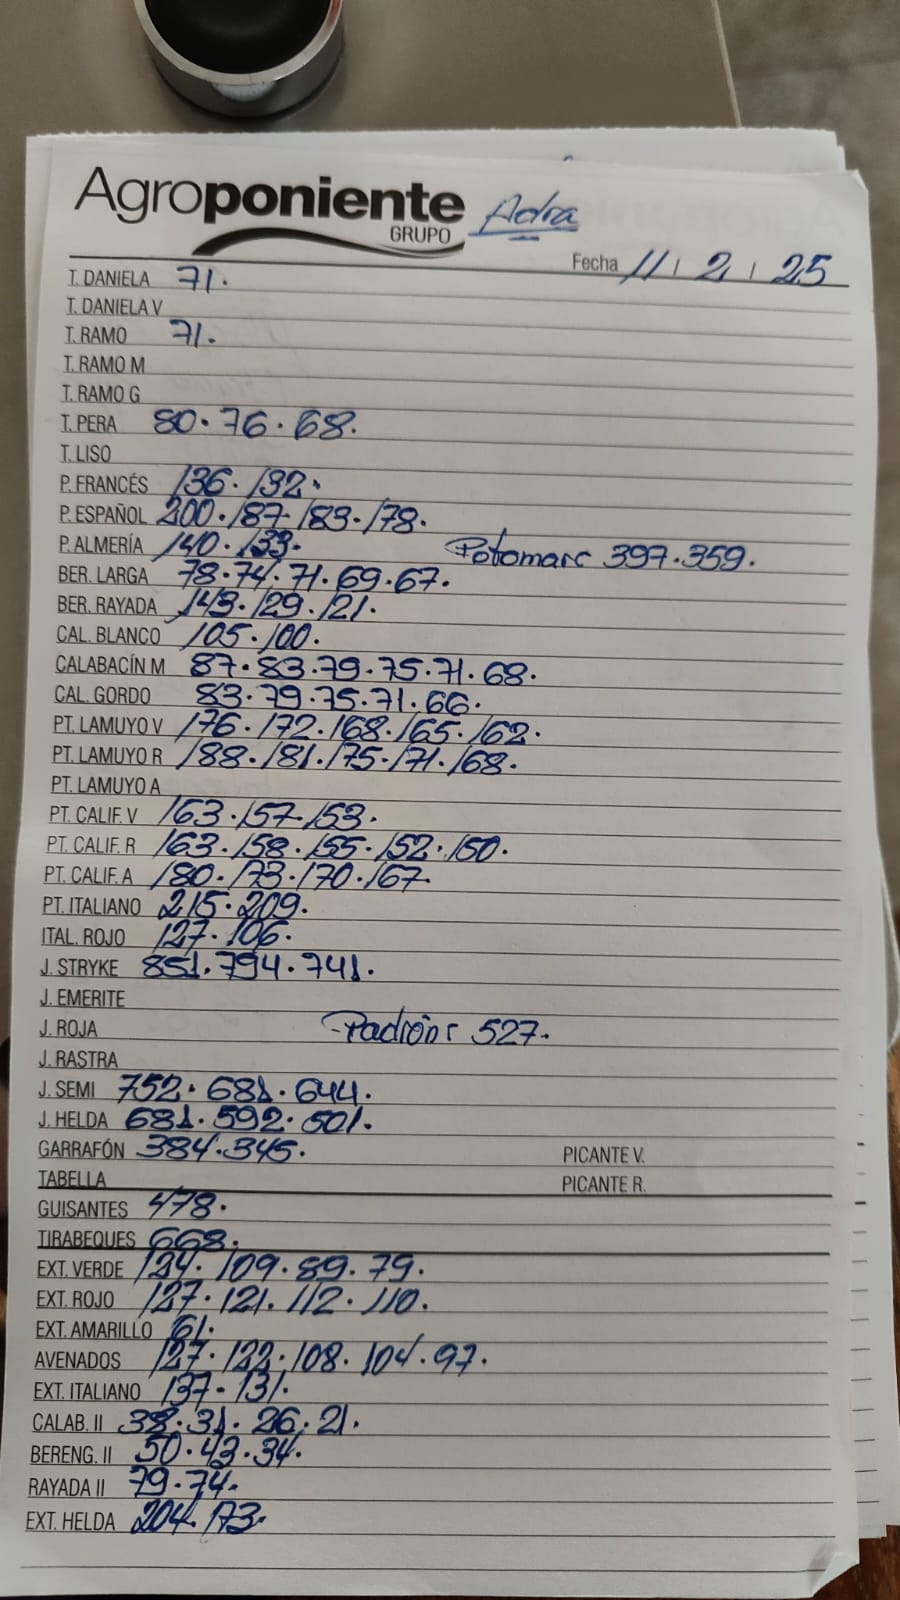 Agroponiente
GRUPO
Adra
Fecha 11 / 2 / 25
T. DANIELA 71.
T. DANIELA V
T. RAMO 71.
T. RAMO M
T. RAMO G
T. PERA 80. 76. 68.
T. LISO
P. FRANCÉS 136. 132.
P. ESPAÑOL 200. 187. 183. 178.
P. ALMERÍA 140. 133. Potomarc 397. 359.
BER. LARGA 78. 74. 71. 69. 67.
BER. RAYADA 143. 129. 121.
CAL. BLANCO 105. 100.
CALABACÍN M 87. 83. 79. 75. 71. 68.
CAL. GORDO 83. 79. 75. 71. 66.
PT. LAMUYO V 176. 172. 168. 165. 162.
PT. LAMUYO R 188. 181. 175. 171. 168.
PT. LAMUYO A
PT. CALIF. V 163. 157. 153.
PT. CALIF. R 163. 158. 155. 152. 150.
PT. CALIF. A 180. 173. 170. 167.
PT. ITALIANO 215. 209.
ITAL. ROJO 127. 106.
J. STRYKE 851. 794. 741.
J. EMERITE
J. ROJA Padrón: 527.
J. RASTRA
J. SEMI 752. 681. 644.
J. HELDA 681. 592. 501.
GARRAFÓN 384. 345. PICANTE V.
TABELLA PICANTE R.
GUISANTES 478.
TIRABEQUES 668.
EXT. VERDE 124. 109. 89. 79.
EXT. ROJO 127. 121. 112. 110.
EXT. AMARILLO 61.
AVENADOS 127. 122. 108. 104. 97.
EXT. ITALIANO 137. 131.
CALAB. II 38. 31. 26. 21.
BERENG. II 50. 43. 34.
RAYADA II 79. 74.
EXT. HELDA 204. 173.